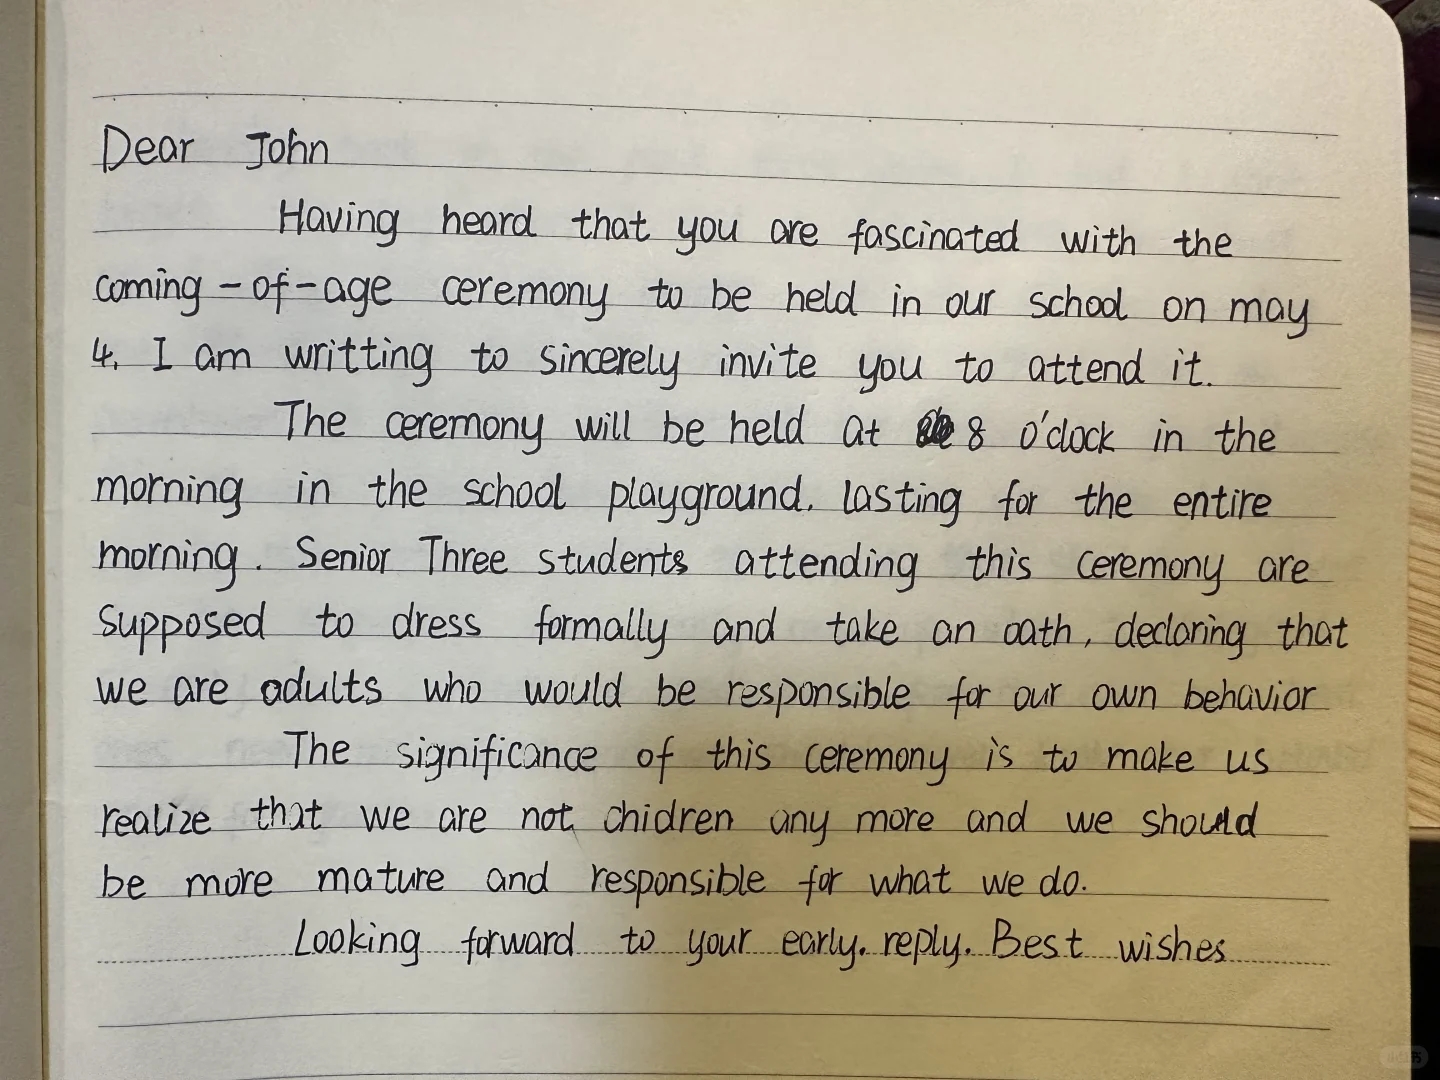 Dear John
Having heard that you are fascinated with the
coming-of-age ceremony to be held in our school on may
4. I am writting to sincerely invite you to attend it.
The ceremony will be held at 8 o'clock in the
morning in the school playground. lasting for the entire
morning. Senior Three students attending this ceremony are
supposed to dress formally and take an oath, declaring that
we are adults who would be responsible for our own behavior
The significance of this ceremony is to make us
realize that we are not chidren any more and we should
be more mature and responsible for what we do.
Looking forward to your early. reply. Best wishes